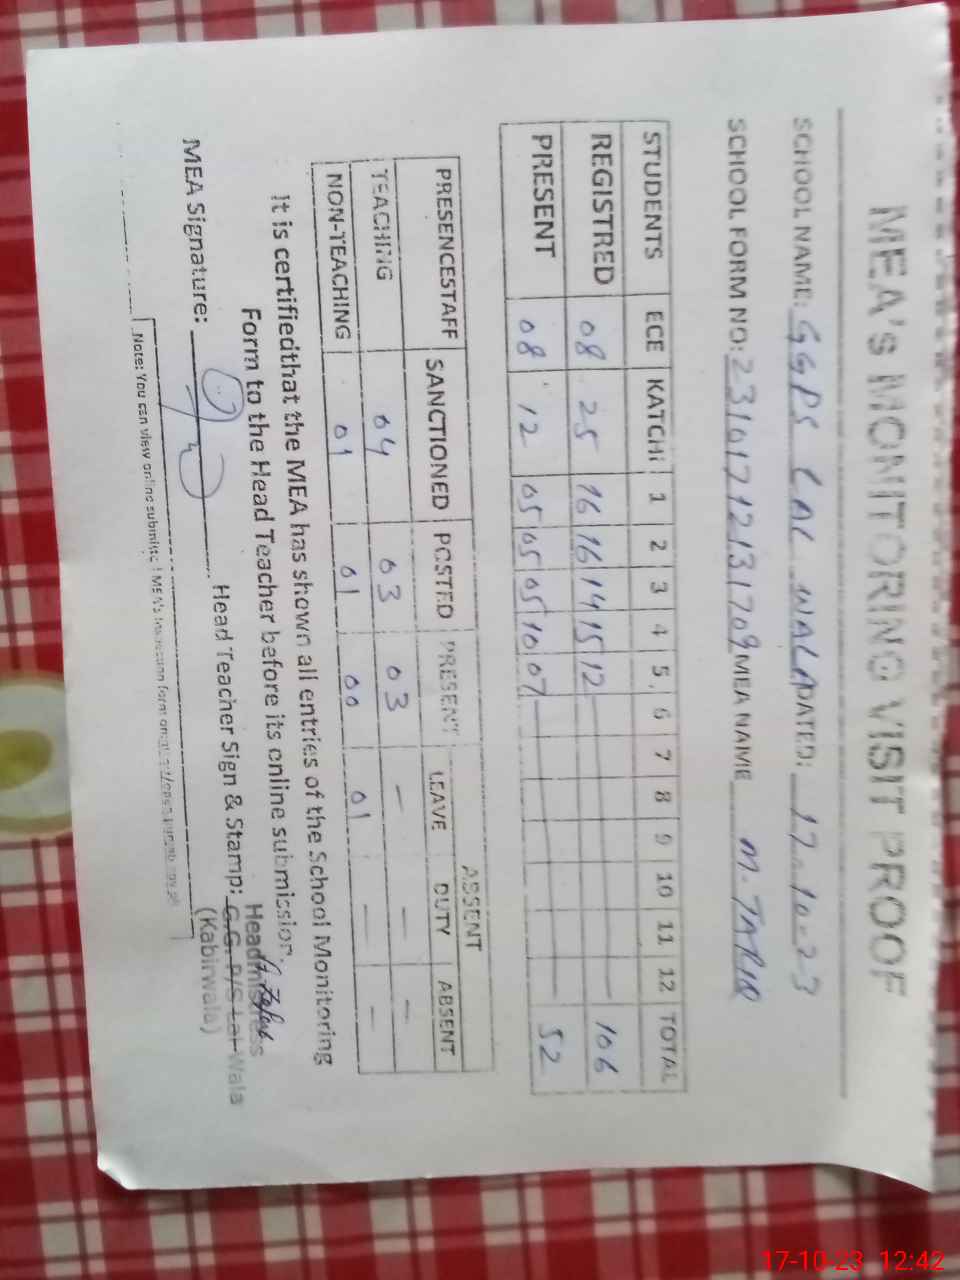 MEA's MONITORING VISIT PROOF
SCHOOL NAME: GGPS LAL WALA DATED: 17-10-23
SCHOOL FORM NO: 23101712131709 MEA NAME M. TARIQ
STUDENTS ECE KATCHI 1 2 3 4 5 6 7 8 9 10 11 12 TOTAL
REGISTRED 08 25 16 16 14 15 12 — — 106
PRESENT 08 12 05 05 05 10 07 — — 52
ABSENT
PRESENCESTAFF SANCTIONED POSTED PRESENT LEAVE DUTY ABSENT
TEACHING 04 03 03 — — —
NON-TEACHING 01 01 00 01 — —
It is certifiedthat the MEA has shown all entries of the School Monitoring
Form to the Head Teacher before its online submission.
MEA Signature: Head Teacher Sign & Stamp: Headmistress
G.G. P/S Lal Wala
(Kabirwala)
Note: You can view online submitted MEA's
17-10-23 12:42